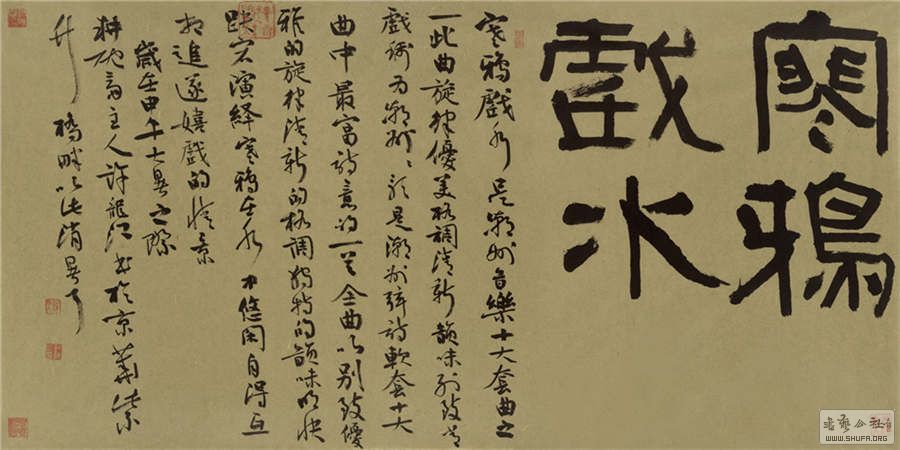 寒鴉
戲水
寒鴉戲水是潮州音樂十大套曲之
一此曲旋律優美格調清新韻味別致
於是潮州絃詩軟套十大
曲中最富詩意的一首全曲以別致優
雅的旋律清新的格調獨特的韻味明快
跌宕演繹寒鴉在水中悠閑自得互
相追逐嬉戲的情景
歲大暑之際
主人許龍江书於京華紫
竹橋畔以此消暑
WWW.SHUFA.ORG